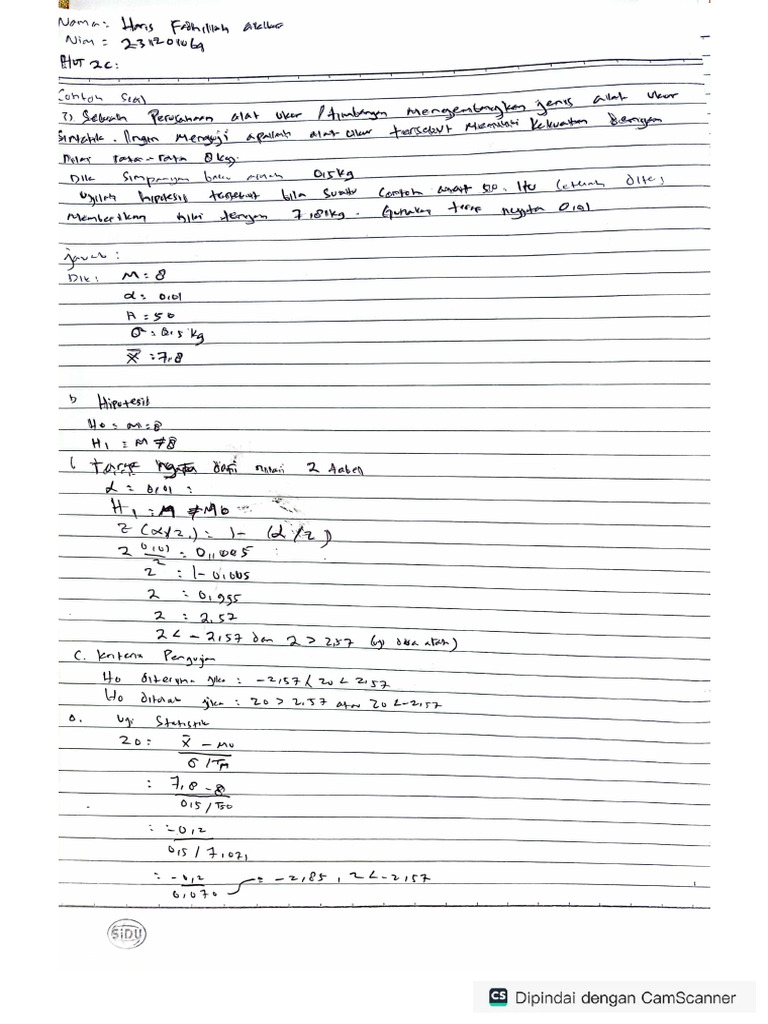 Nama: Haris Fadhillah
Nim = 231201069
2c:
Contoh Soal
Sebuah Perusahaan alat ukur / timbangan mengembangkan jenis alat ukur
Sintetik. Ingin menguji apakah alat ukur tersebut memiliki kekuatan dengan
nilai rata-rata 8 kg.
Dik Simpangan baku adalah 0,5 kg
Ujilah hipotesis tersebut bila suatu contoh 50. Itu setelah dites
memberikan nilai dengan 7,8 kg. Gunakan taraf nyata 0,01
Jawab :
Dik : M = 8
α = 0,01
n = 50
σ = 0,5 kg
x̄ = 7,8
b Hipotesis
Ho = M = 8
H1 = M ≠ 8
taraf nyata dari Z tabel
α = 0,01 :
H1 = M ≠ M0
Z (α/2) = 1 - (α/2)
Z 0,01/2 = 0,005
Z = 1 - 0,005
Z = 0,995
Z = 2,57
Z < - 2,57 dan Z > 2,57 (uji dua arah)
C. Kriteria Pengujian
Ho diterima jika : -2,57 < Zo < 2,57
Ho ditolak jika : Zo > 2,57 atau Zo < -2,57
D. Uji Statistik
Zo = x̄ - M0
σ / √n
: 7,8 - 8
0,5 / √50
: -0,2
0,5 / 7,071
: -0,2 = -2,85 , Z < -2,57
0,070
SiDU
CS Dipindai dengan CamScanner